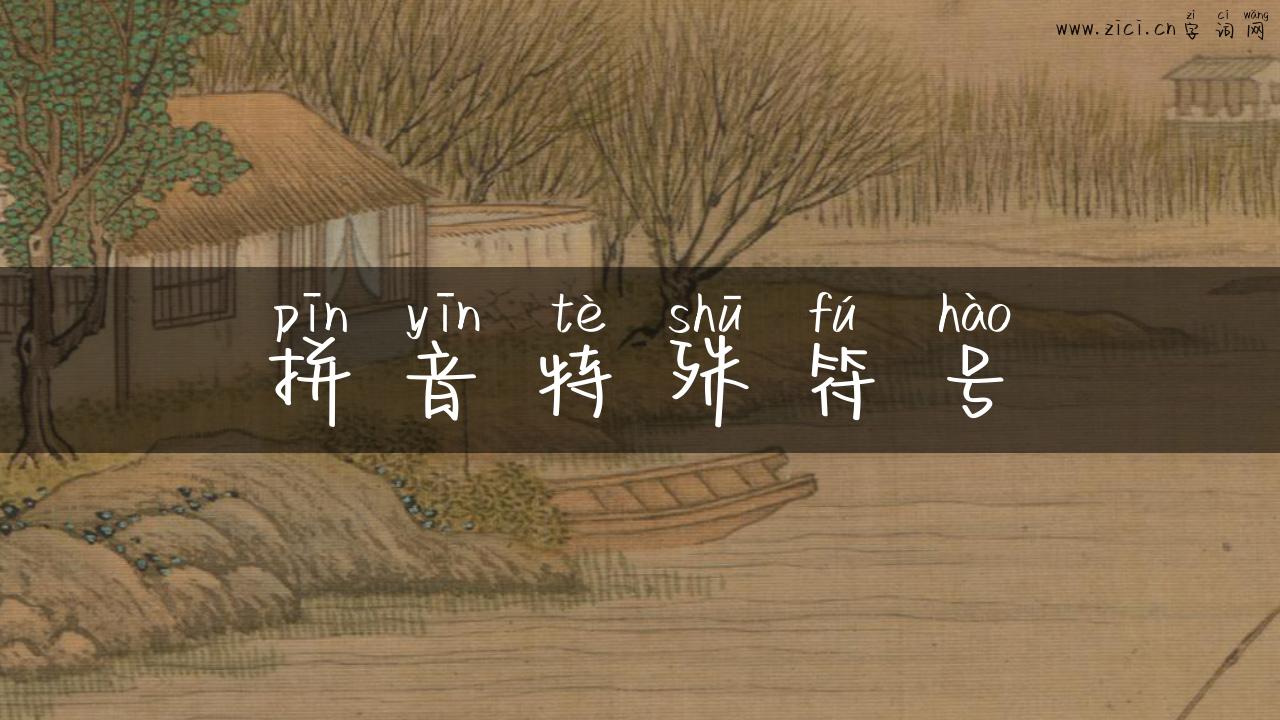 zì cí wǎng
www.zici.cn 字词网
pīn yīn tè shū fú hào
拼音特殊符号